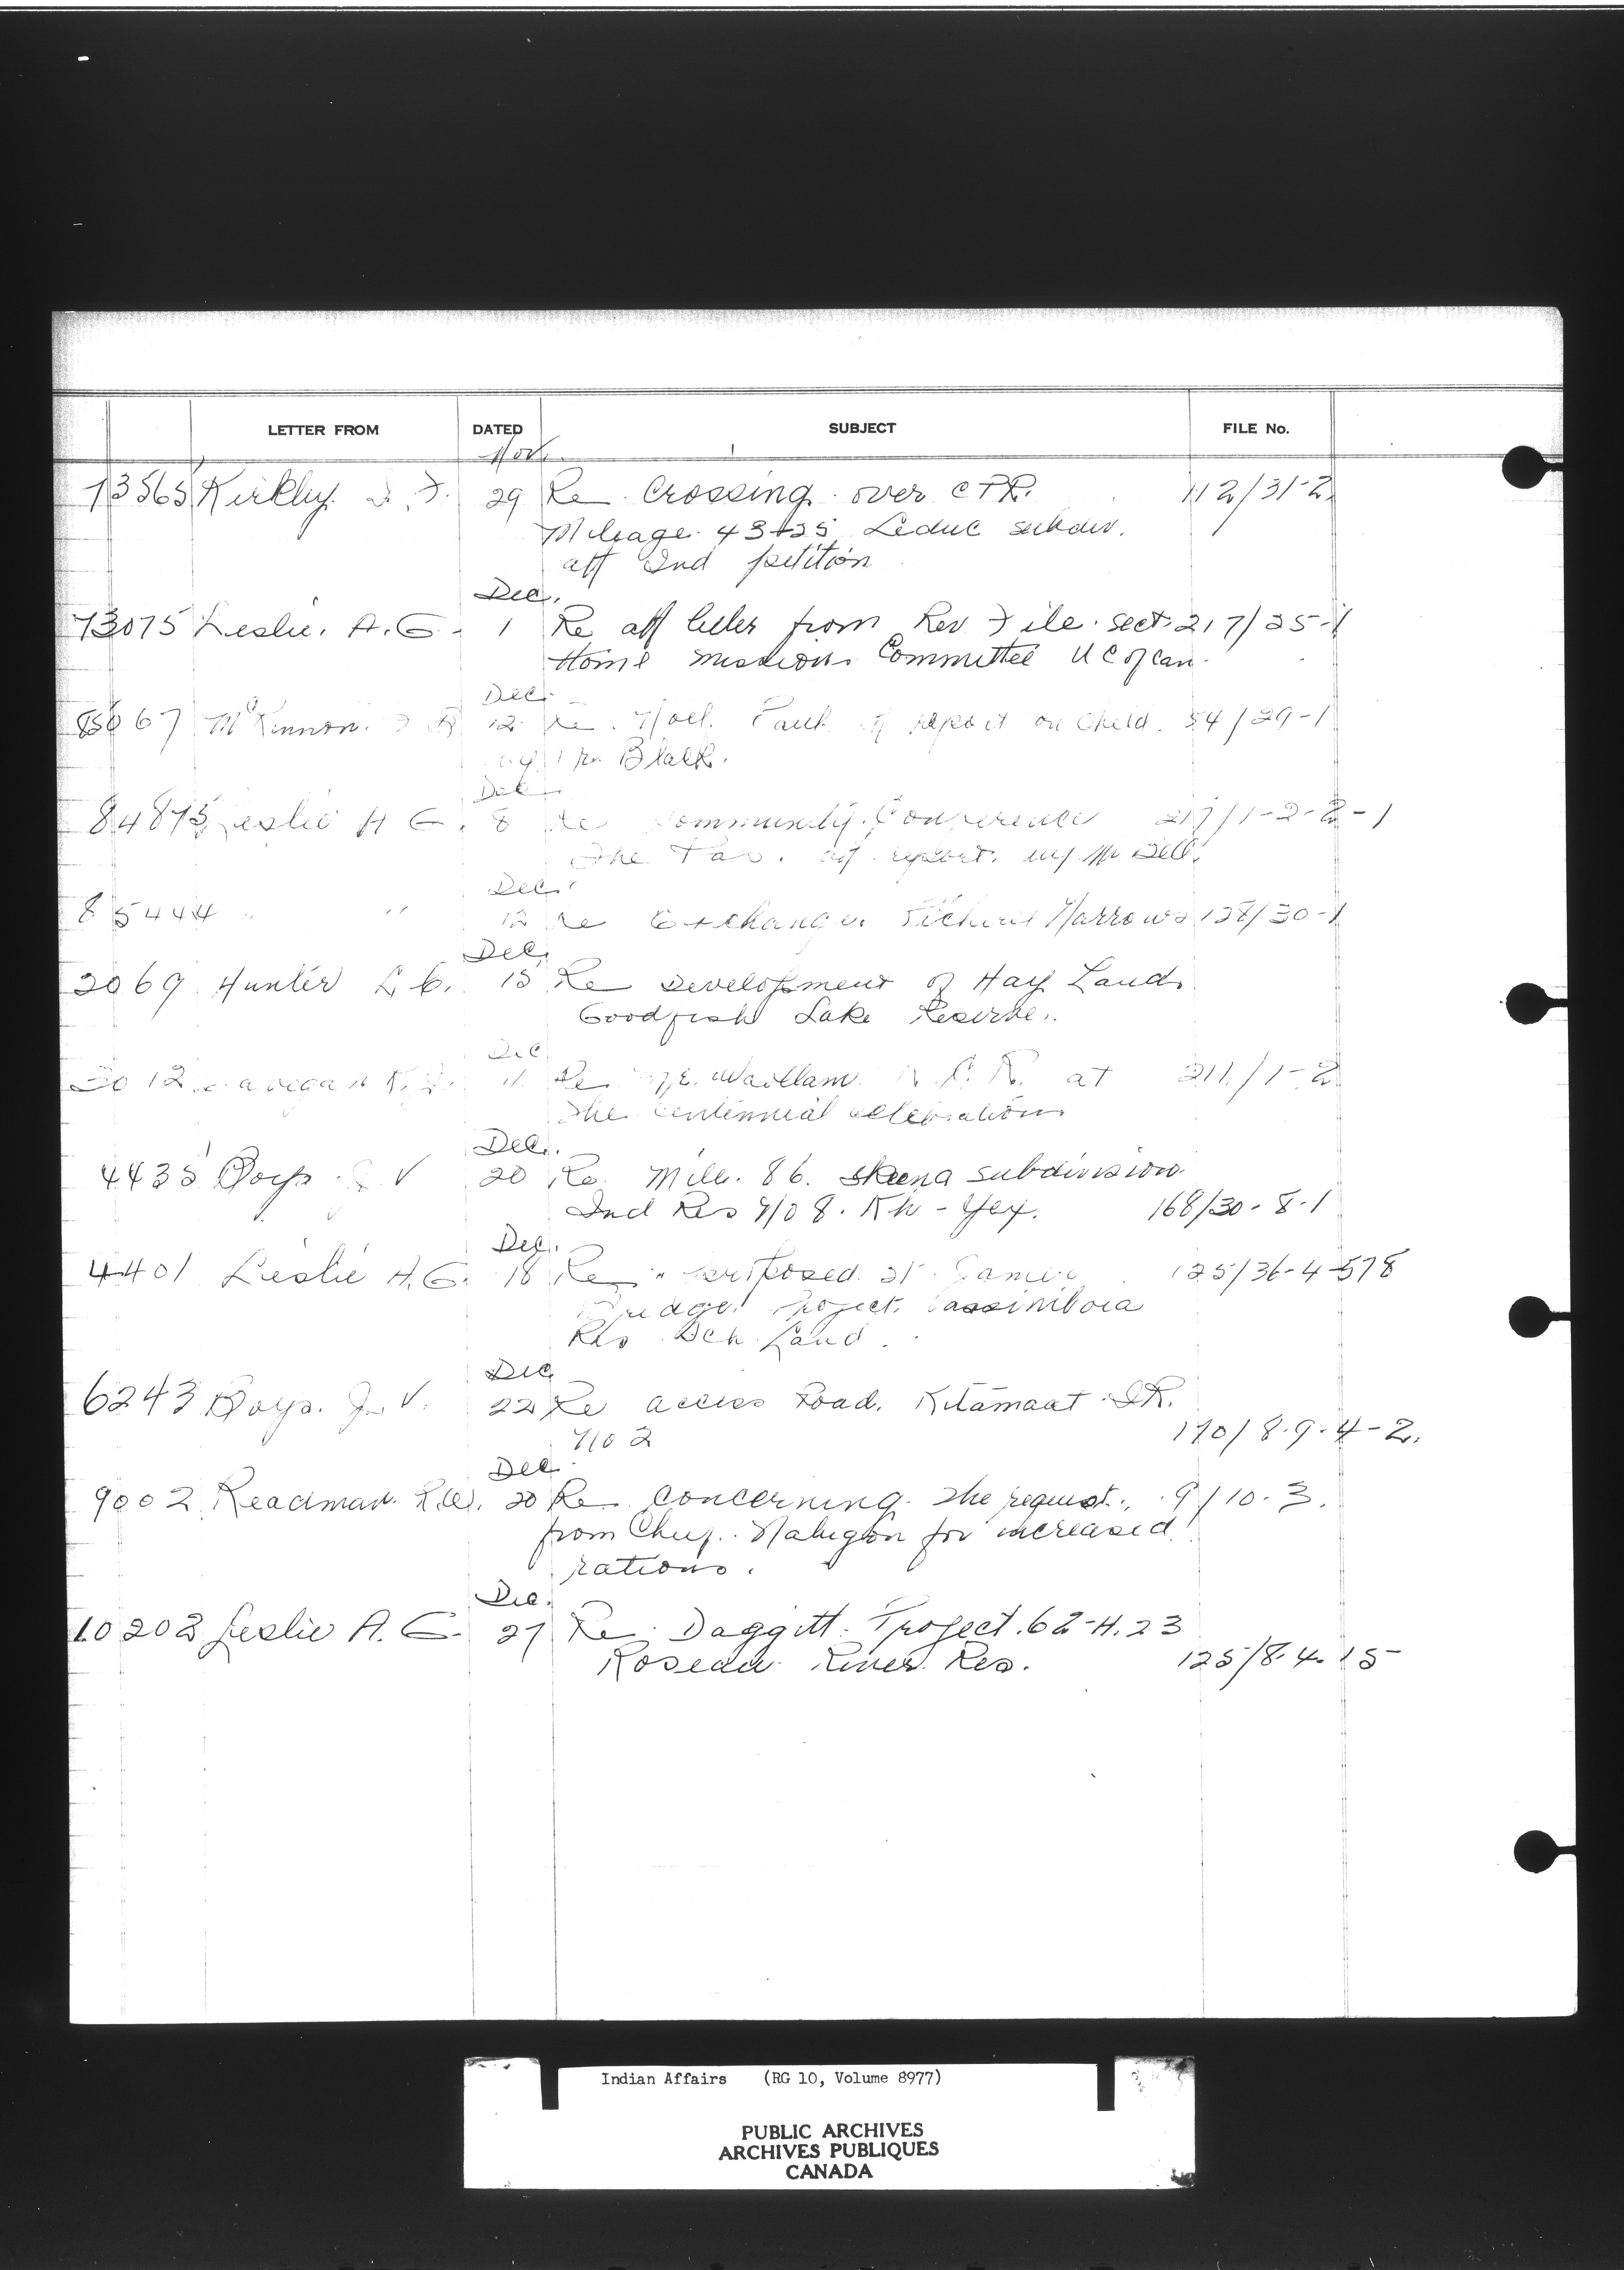 LETTER FROM DATED SUBJECT FILE No.
Nov.
73565 Kirkby. 29 Re Crossing over CPR. 112/31-2
Mileage. 43+25 Leduc subdiv.
aff Ind petition
Dec.
73075 Leslie. A. G. 1 Re aff letter from Rev File. sect. 217/25-1
Home Missions Committee U C of Can.
Dec.
85067 McKinnon. 12 Re. Noel Paul report on child. 54/29-1
Black.
Dec
84875 Leslie A G. 8 Re Community Conference 217/1-2-2-1
The Pas. report. by Mr
Dec.
85444 " " 12 Re Exchange. Narrows 128/30-1
Dec.
2069 Hunter L C. 15 Re Development of Hay Land.
Goodfish Lake Reserve.
Dec
2012 11 Re at 211/1-2
the centennial celebration
Dec.
4435 Boys. J V 20 Re. Mile. 86. Skeena subdivision
Ind Res No 8. Kh-Yex. 168/30-8-1
Dec.
4401 Leslie A. G. 18 Re proposed St. James 125/36-4-578
Bridge Project. Assiniboia
Res Sch Land.
Dec
6243 Boys. J. V. 22 Re access Road. Kitamaat I.R.
No 2 170/8-9-4-2.
Dec
9002 Readman. 20 Re concerning the request. 9/10-3.
from Chief. for increased
rations.
Dec.
10202 Leslie A. G. 27 Re. Daggitt. Project. 62-H.23
Roseau River Res. 125/8-4-15
Indian Affairs (RG 10, Volume 8977)
PUBLIC ARCHIVES
ARCHIVES PUBLIQUES
CANADA